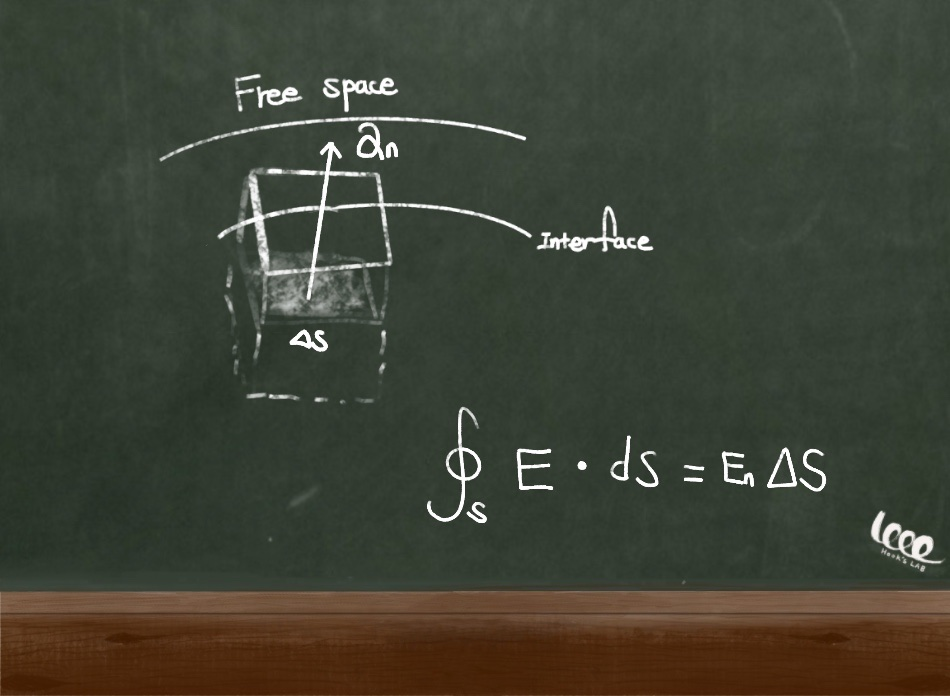 Free space
an
Interface
ΔS
∮s E · ds = En ΔS
leee
Hook's LAB